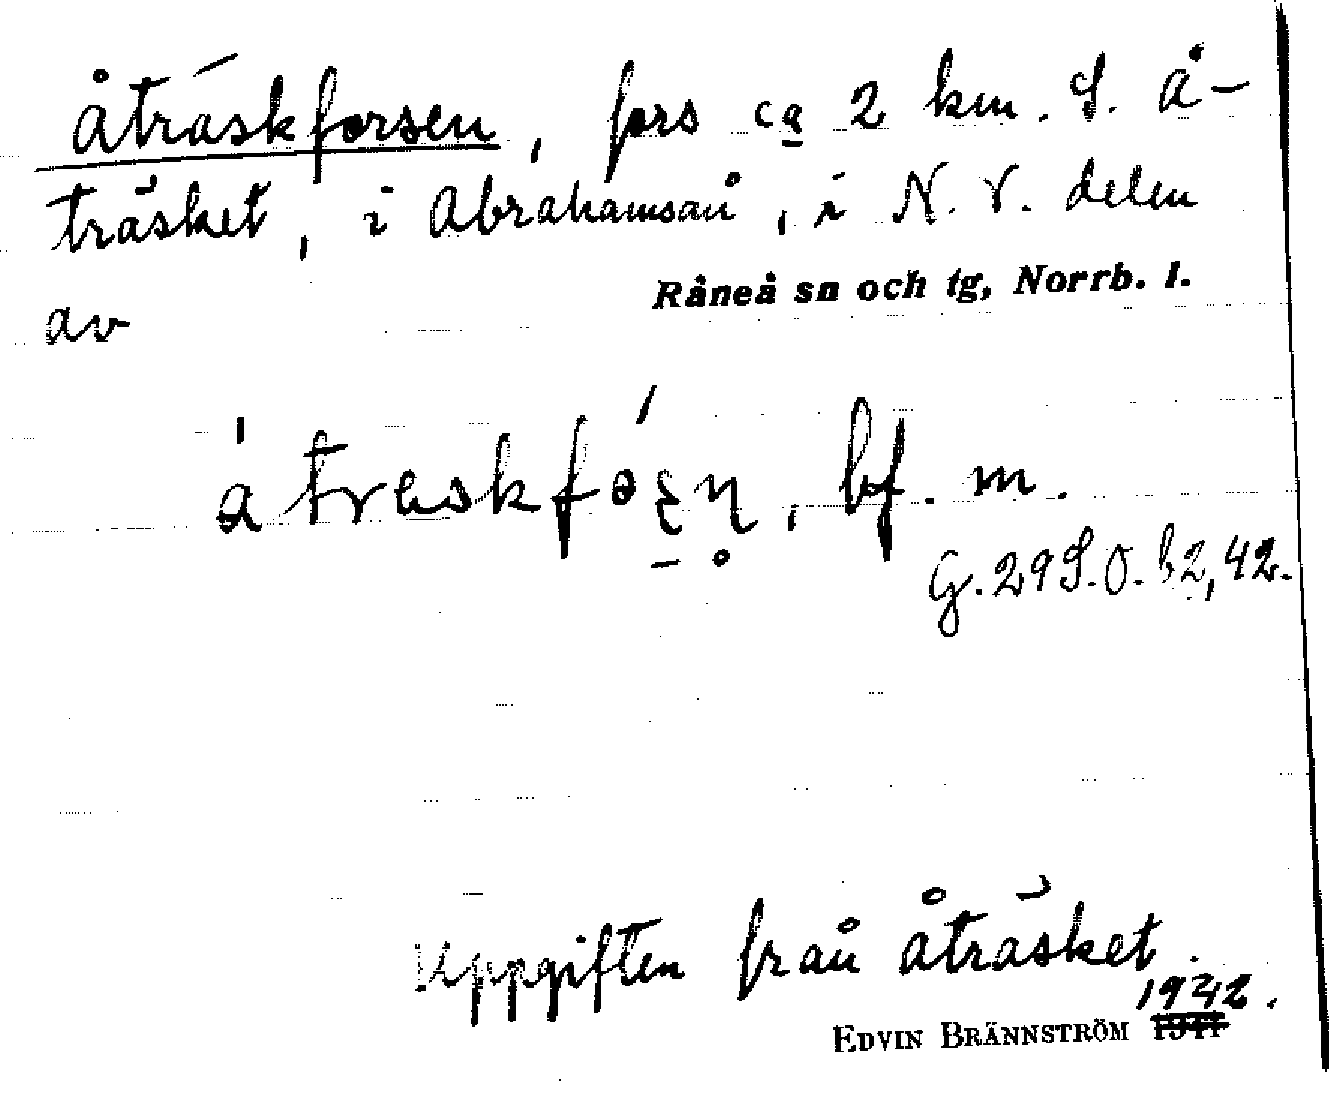 Åträskforsen, fors ca 2 km. S. Å-
träsket, i Abrahamsån, i N. V. delen
av Råneå sn och tg, Norrb. l.
åtraskfóṣṇ, bf. m.
G. 29 S. O. b2, 42.
Uppgiften från Åträsket.
1942.
EDVIN BRÄNNSTRÖM 1941